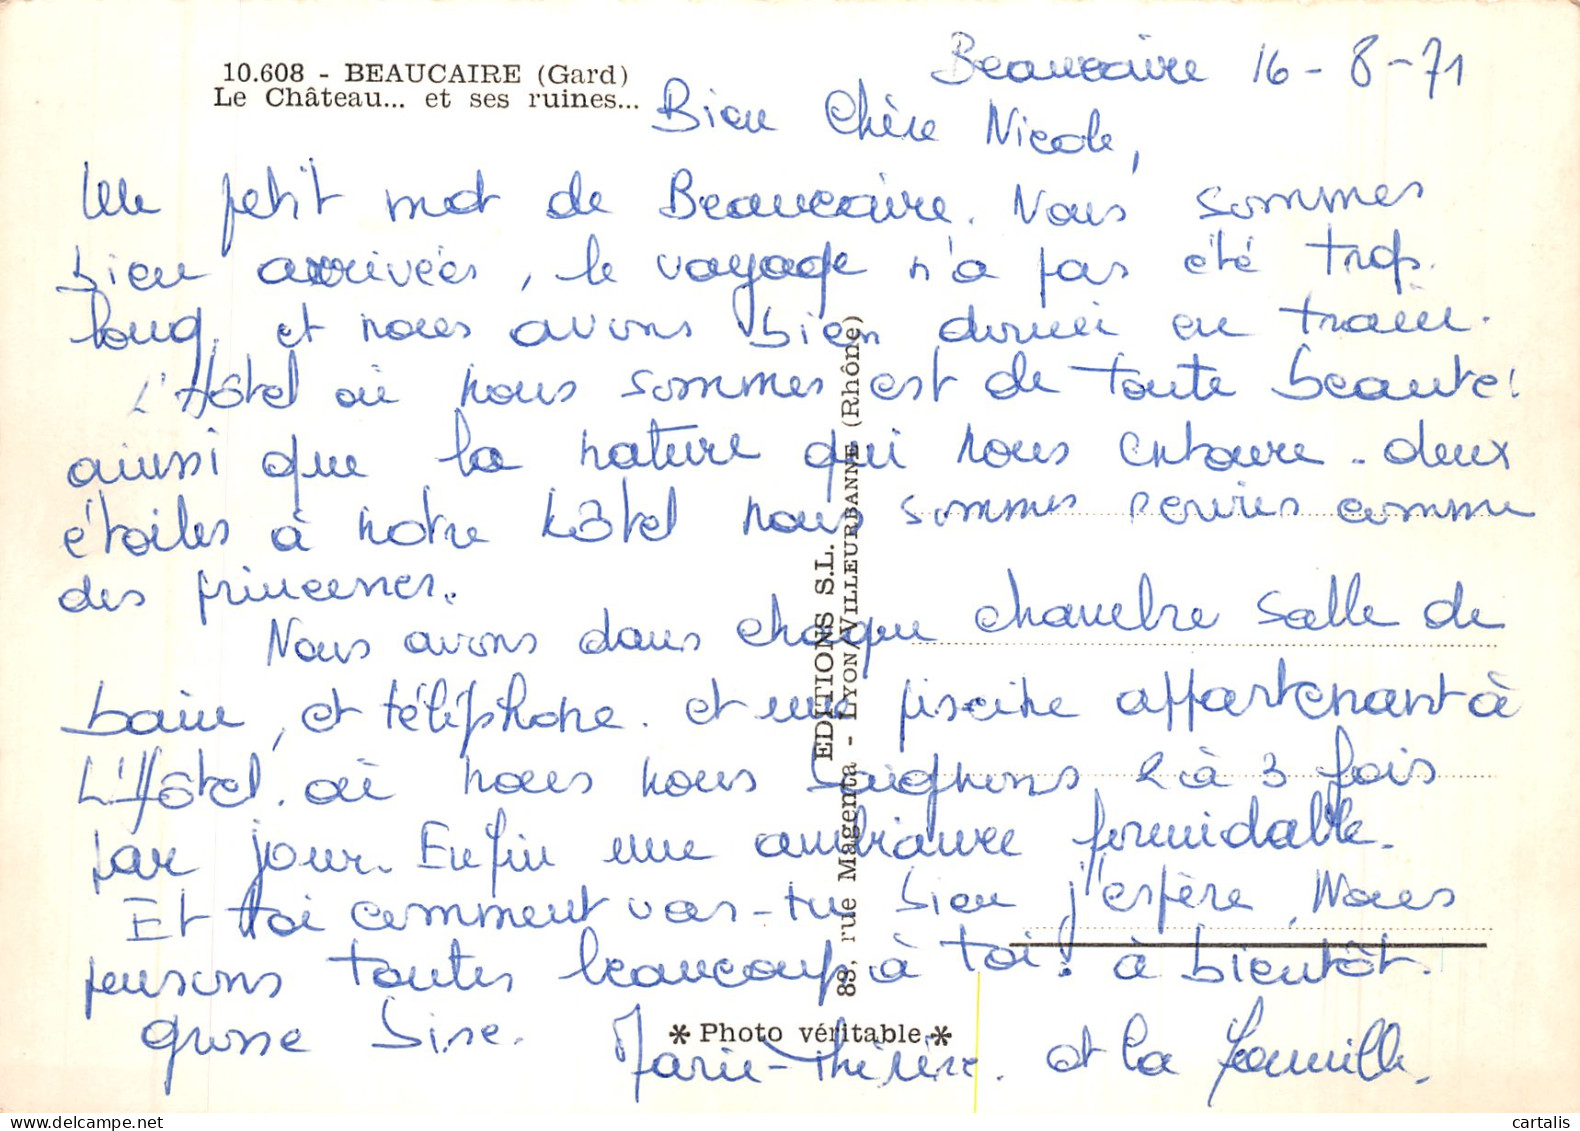 10.608 - BEAUCAIRE (Gard)
Le Château... et ses ruines...
Beaucaire 16-8-71
Bien Chère Nicole,
Un petit mot de Beaucaire. Nous sommes
bien arrivées, le voyage n'a pas été trop
long, et nous avons bien dormi en train.
L'Hôtel où nous sommes est de toute beauté
ainsi que la nature qui nous entoure. deux
étoiles à notre hôtel nous sommes servies comme
des princesses.
Nous avons dans chaque chambre salle de
bain, et téléphone. et une piscine appartenant à
L'Hôtel. où nous nous baignons 2 à 3 fois
par jour. Enfin une ambiance formidable.
Et toi comment vas-tu bien j'espère, Nous
pensons toutes beaucoup à toi. à bientôt.
grosse bise. Marie-Thérèse. et la famille.
EDITIONS S.L.
83, rue Magenta - LYON/VILLEURBANNE (Rhône)
* Photo véritable *
cartalis